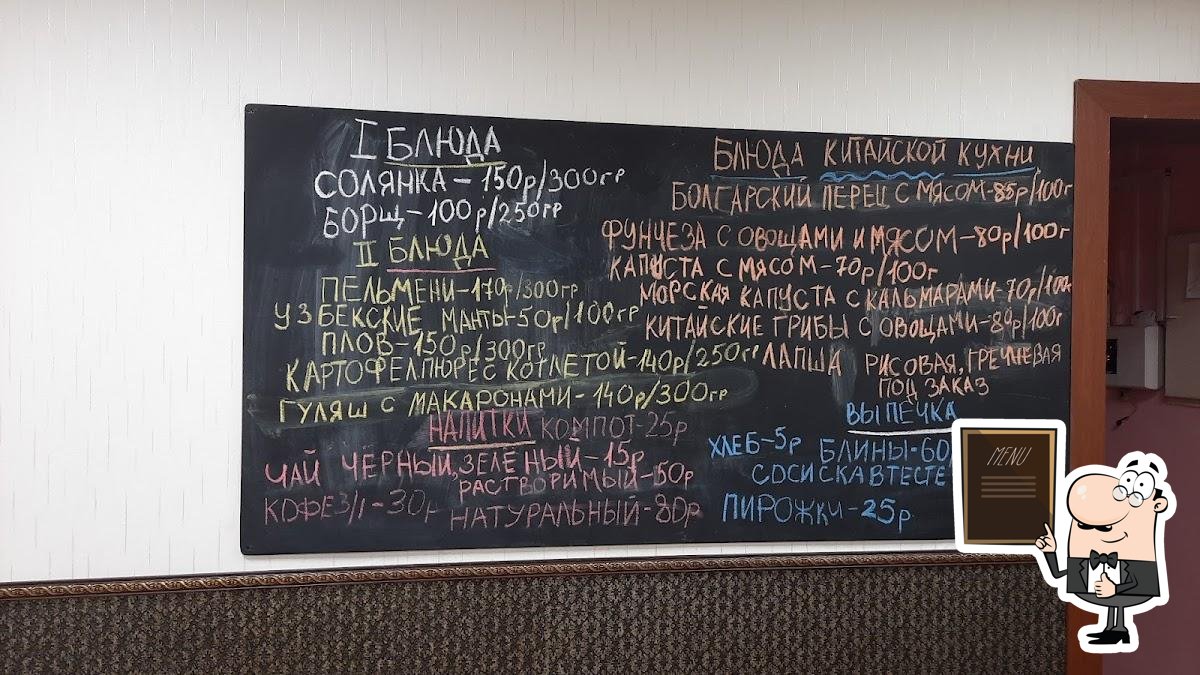 I БЛЮДА
СОЛЯНКА - 150р/300гр
БОРЩ - 100р/250гр
II БЛЮДА
ПЕЛЬМЕНИ - 170р/300гр
УЗБЕКСКИЕ МАНТЫ - 50р/100гр
ПЛОВ - 150р/300гр
КАРТОФЕЛ ПЮРЕ С КОТЛЕТОЙ - 140р/250гр
ГУЛЯШ С МАКАРОНАМИ - 140р/300гр
НАПИТКИ КОМПОТ - 25р
ЧАЙ ЧЁРНЫЙ, ЗЕЛЁНЫЙ - 15р
РАСТВОРИМЫЙ - 50р
КОФЕ 3/1 - 30р
НАТУРАЛЬНЫЙ - 80р
БЛЮДА КИТАЙСКОЙ КУХНИ
БОЛГАРСКИЙ ПЕРЕЦ С МЯСОМ - 85р/100г
ФУНЧЕЗА С ОВОЩАМИ И МЯСОМ - 80р/100г
КАПУСТА С МЯСОМ - 70р/100г
МОРСКАЯ КАПУСТА С КАЛЬМАРАМИ - 70р/100г
КИТАЙСКИЕ ГРИБЫ С ОВОЩАМИ - 80р/100г
ЛАПША РИСОВАЯ, ГРЕЧНЕВАЯ
ПОД ЗАКАЗ
ВЫПЕЧКА
ХЛЕБ - 5р БЛИНЫ - 60
СОСИСКА В ТЕСТЕ
ПИРОЖКИ - 25р
MENU